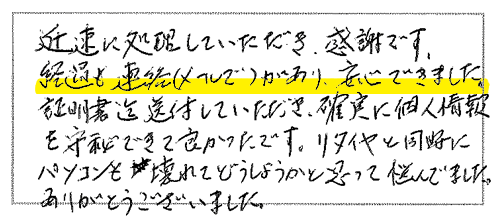 迅速に処理していただき、感謝です。
経過も連絡(メールで)があり、安心できました。
証明書迄送付していただき、確実に個人情報
を守秘できて良かったです。リタイヤと同時に
パソコンも壊れてどうしようかと思って悩んでました。
ありがとうございました。